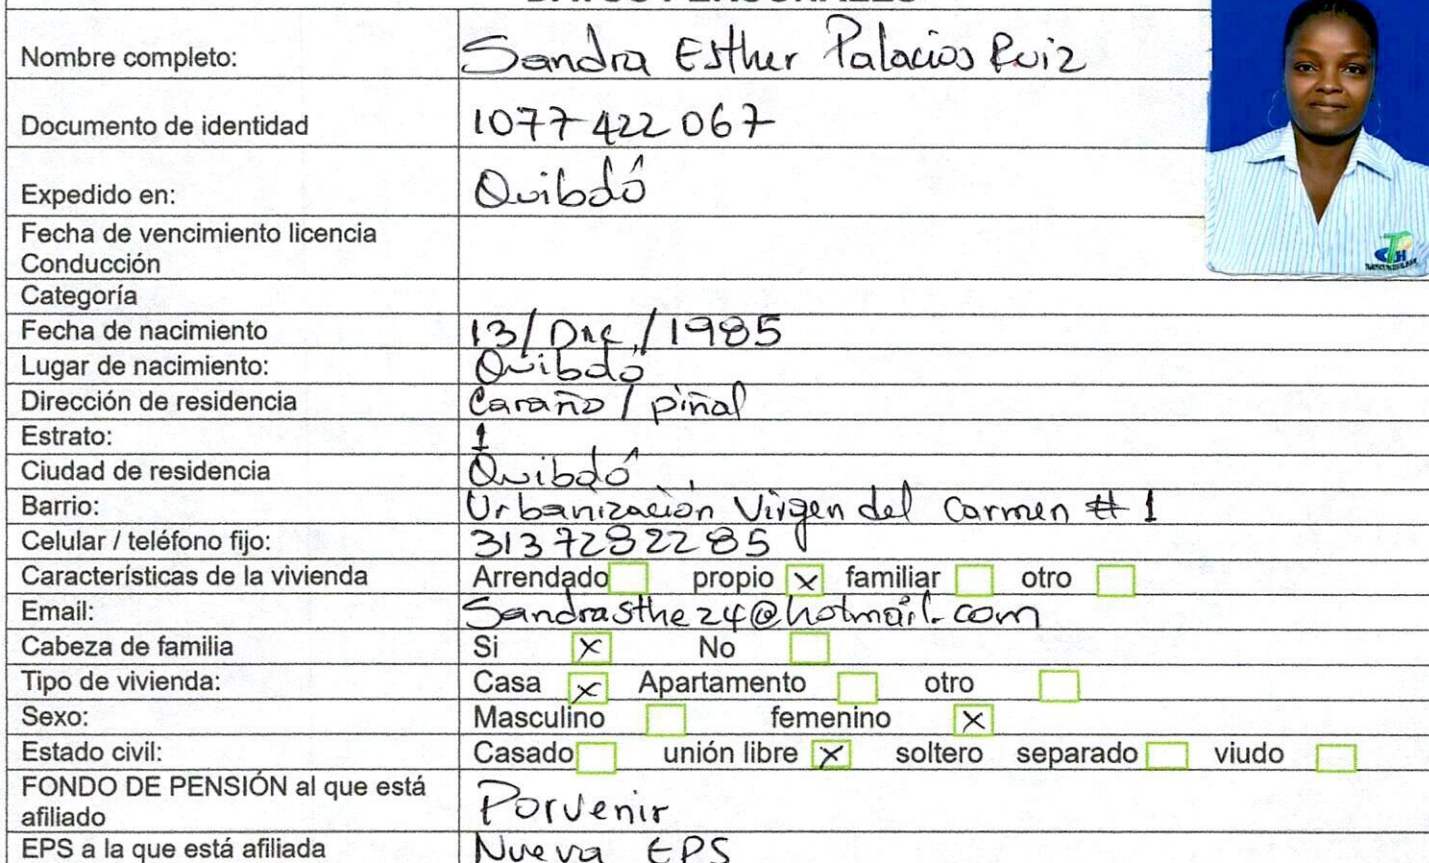 DATOS PERSONALES
Nombre completo: Sandra Esther Palacios Ruiz
Documento de identidad 1077422067
Expedido en: Quibdó
Fecha de vencimiento licencia
Conducción
Categoría
Fecha de nacimiento 13/Dic/1985
Lugar de nacimiento: Quibdó
Dirección de residencia Caraño / piñal
Estrato: 1
Ciudad de residencia Quibdó
Barrio: Urbanización Virgen del Carmen # 1
Celular / teléfono fijo: 3137282285
Características de la vivienda Arrendado propio X familiar otro
Email: Sandrasthe24@hotmail.com
Cabeza de familia Si X No
Tipo de vivienda: Casa X Apartamento otro
Sexo: Masculino femenino X
Estado civil: Casado unión libre X soltero separado viudo
FONDO DE PENSIÓN al que está
afiliado Porvenir
EPS a la que está afiliada Nueva EPS